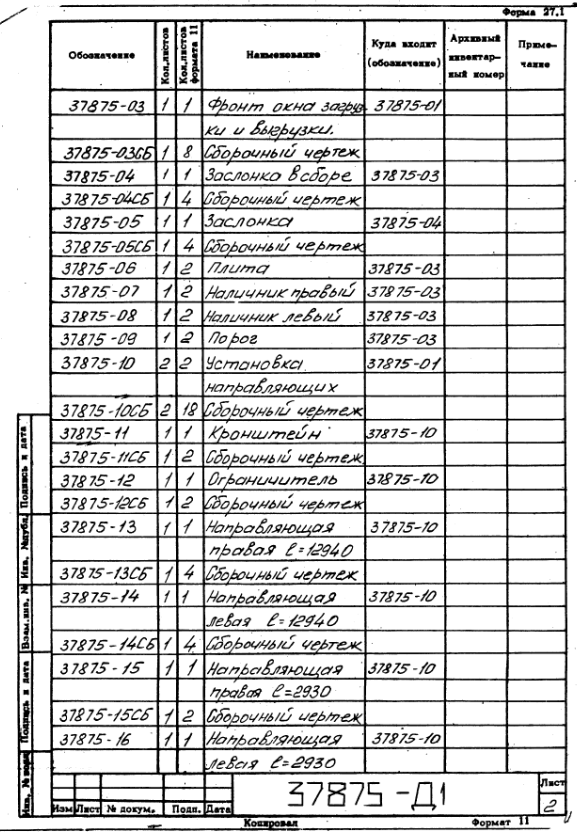 Форма 27.1
Обозначение Кол.листов Кол.листов формата 11 Наименование Куда входит (обозначение) Архивный инвентарный номер Примечание
37875-03 1 1 Фронт окна загруз- 37875-01
ки и выгрузки.
37875-03СБ 1 8 Сборочный чертеж
37875-04 1 1 Заслонка в сборе 37875-03
37875-04СБ 1 4 Сборочный чертеж
37875-05 1 1 Заслонка 37875-04
37875-05СБ 1 4 Сборочный чертеж
37875-06 1 2 Плита 37875-03
37875-07 1 2 Наличник правый 37875-03
37875-08 1 2 Наличник левый 37875-03
37875-09 1 2 Порог 37875-03
37875-10 2 2 Установка 37875-01
направляющих
37875-10СБ 2 18 Сборочный чертеж
37875-11 1 1 Кронштейн 37875-10
37875-11СБ 1 2 Сборочный чертеж
37875-12 1 1 Ограничитель 37875-10
37875-12СБ 1 2 Сборочный чертеж
37875-13 1 1 Направляющая 37875-10
правая ℓ=12940
37875-13СБ 1 4 Сборочный чертеж
37875-14 1 1 Направляющая 37875-10
левая ℓ=12940
37875-14СБ 1 4 Сборочный чертеж
37875-15 1 1 Направляющая 37875-10
правая ℓ=2930
37875-15СБ 1 2 Сборочный чертеж
37875-16 1 1 Направляющая 37875-10
левая ℓ=2930
Инв. № подл Подпись и дата Взам.инв. № Инв. №дубл. Подпись и дата
Изм Лист № докум. Подп. Дата
37875-Д1
Лист
2
Копировал Формат 11